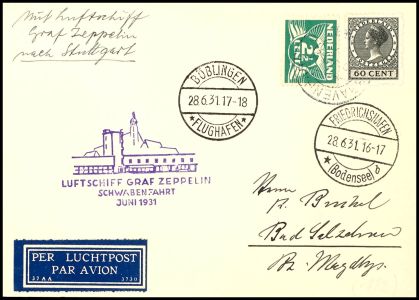 Mit Luftschiff
Graf Zeppelin
nach Stuttgart
NEDERLAND
2½
CENT
60 CENT
BÖBLINGEN
28.6.31.17-18
FLUGHAFEN
FRIEDRICHSHAFEN
28.6.31.16-17
(Bodensee) d
LUFTSCHIFF GRAF ZEPPELIN
SCHWABENFAHRT
JUNI 1931
Herrn
Bad Salzelmen
Bz. Magdbg.
PER LUCHTPOST
PAR AVION
37AA 3730